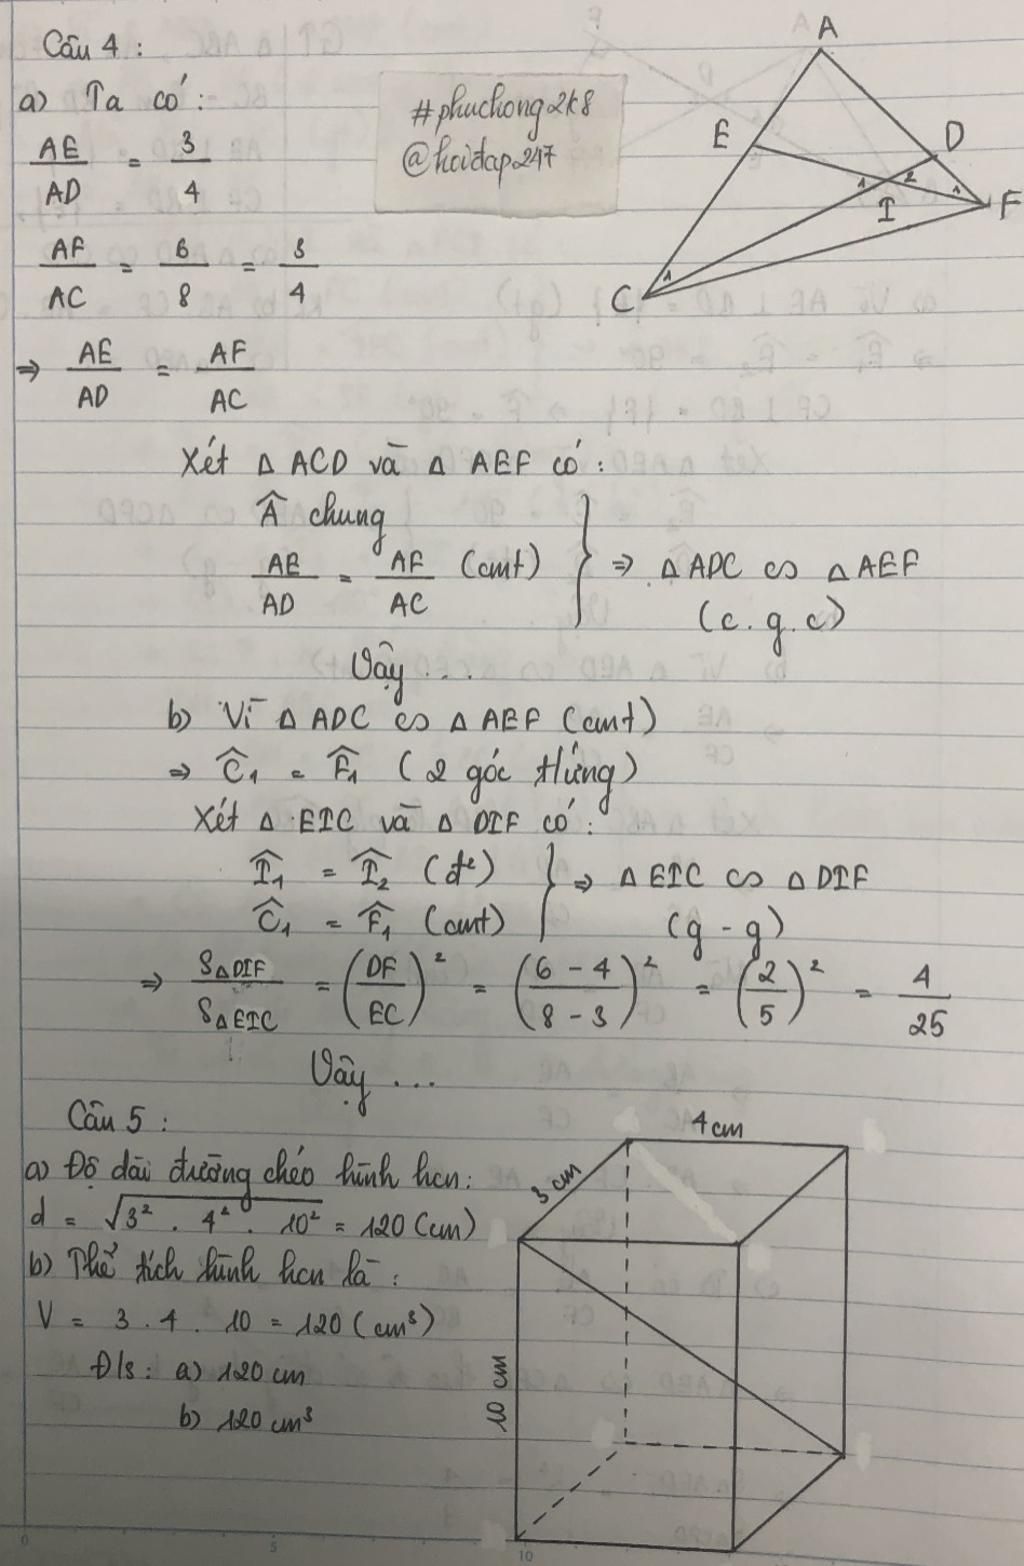 Câu 4 :
a) Ta có :
#phuchong2k8
@hoidap247
AE / AD = 3 / 4
AF / AC = 6 / 8 = 3 / 4
⇒ AE / AD = AF / AC
A
E
D
1
2
1
I
F
C
1
Xét Δ ACD và Δ AEF có :
Â chung
AE / AD = AF / AC (cmt) } ⇒ Δ ADC ∽ Δ AEF
(c.g.c)
Vậy ...
b) Vì Δ ADC ∽ Δ AEF (cmt)
⇒ Ĉ₁ = F̂₁ (2 góc tứng)
Xét Δ EIC và Δ DIF có :
Î₁ = Î₂ (đ²) } ⇒ Δ EIC ∽ Δ DIF
Ĉ₁ = F̂₁ (cmt) (g - g)
⇒ SΔDIF / SΔEIC = (DF / EC)² = (6 - 4 / 8 - 3)² = (2 / 5)² = 4 / 25
Vậy ...
Câu 5 :
a) Độ dài đường chéo hình hcn :
d = √3² . 4² . 10² = 120 (cm)
b) Thể tích hình hcn là :
V = 3 . 4 . 10 = 120 (cm³)
Đ/s : a) 120 cm
b) 120 cm³
4 cm
3 cm
10 cm
0
5
10